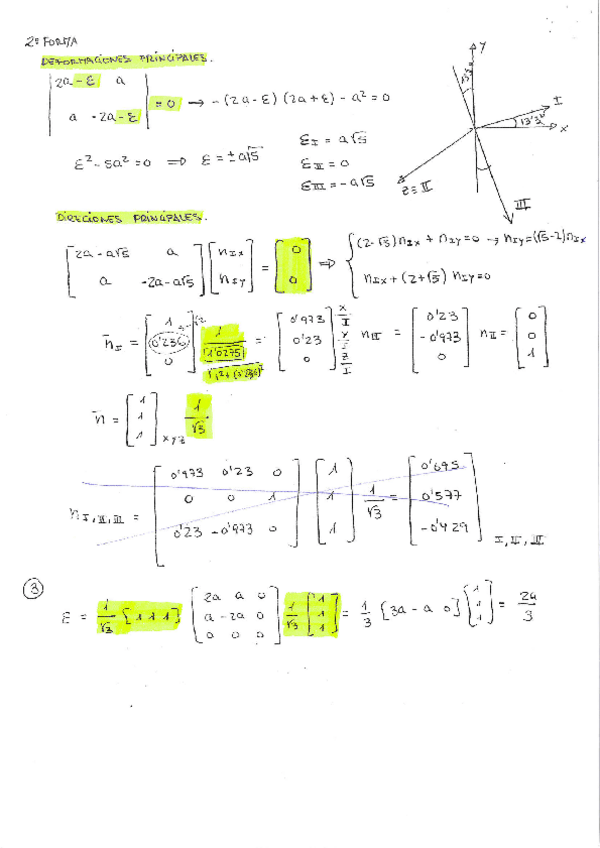 2ª FORMA
DEFORMACIONES PRINCIPALES.
| 2a - ε  a |
| a  -2a - ε | = 0 → -(2a - ε)(2a + ε) - a² = 0
ε² - 5a² = 0 ⇒ ε = ± a√5
ε_I = a√5
ε_II = 0
ε_III = -a√5
y
I
13'3º
x
z ≡ II
III
DIRECIONES PRINCIPALES.
[ 2a - a√5  a ] [ n_Ix ] = [ 0 ] ⇒ { (2-√5) n_Ix + n_Iy = 0 → n_Iy = (√5-2) n_Ix
[ a  -2a - a√5 ] [ n_Iy ] = [ 0 ] { n_Ix + (2+√5) n_Iy = 0
n̄_I = [ 1 0'236 0 ] √5-2 1/√1'0275 = [ 0'973 0'23 0 ] x/I y/I z/I n_III = [ 0'23 -0'973 0 ] n_II = [ 0 0 1 ]
n̄ = [ 1 1 1 ] xyz 1/√3
n_I,II,III = [ 0'973 0'23 0 ] [ 1 ] [ 0'695 ]
[ 0 0 1 ] [ 1 ] 1/√3 = [ 0'577 ]
[ 0'23 -0'973 0 ] [ 1 ] [ -0'429 ] I, II, III
③
ε = 1/√3 [1 1 1] [ 2a a 0 / a -2a 0 / 0 0 0 ] 1/√3 [ 1 1 1 ] = 1/3 [3a -a 0] [ 1 1 1 ] = 2a/3